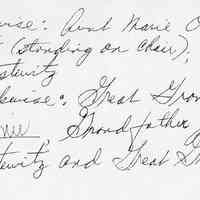 ise: Aunt Marie O
(standing on chair),
stewitz
kwise: Great Gran
nie Grandfather
tewitz and Great Gr